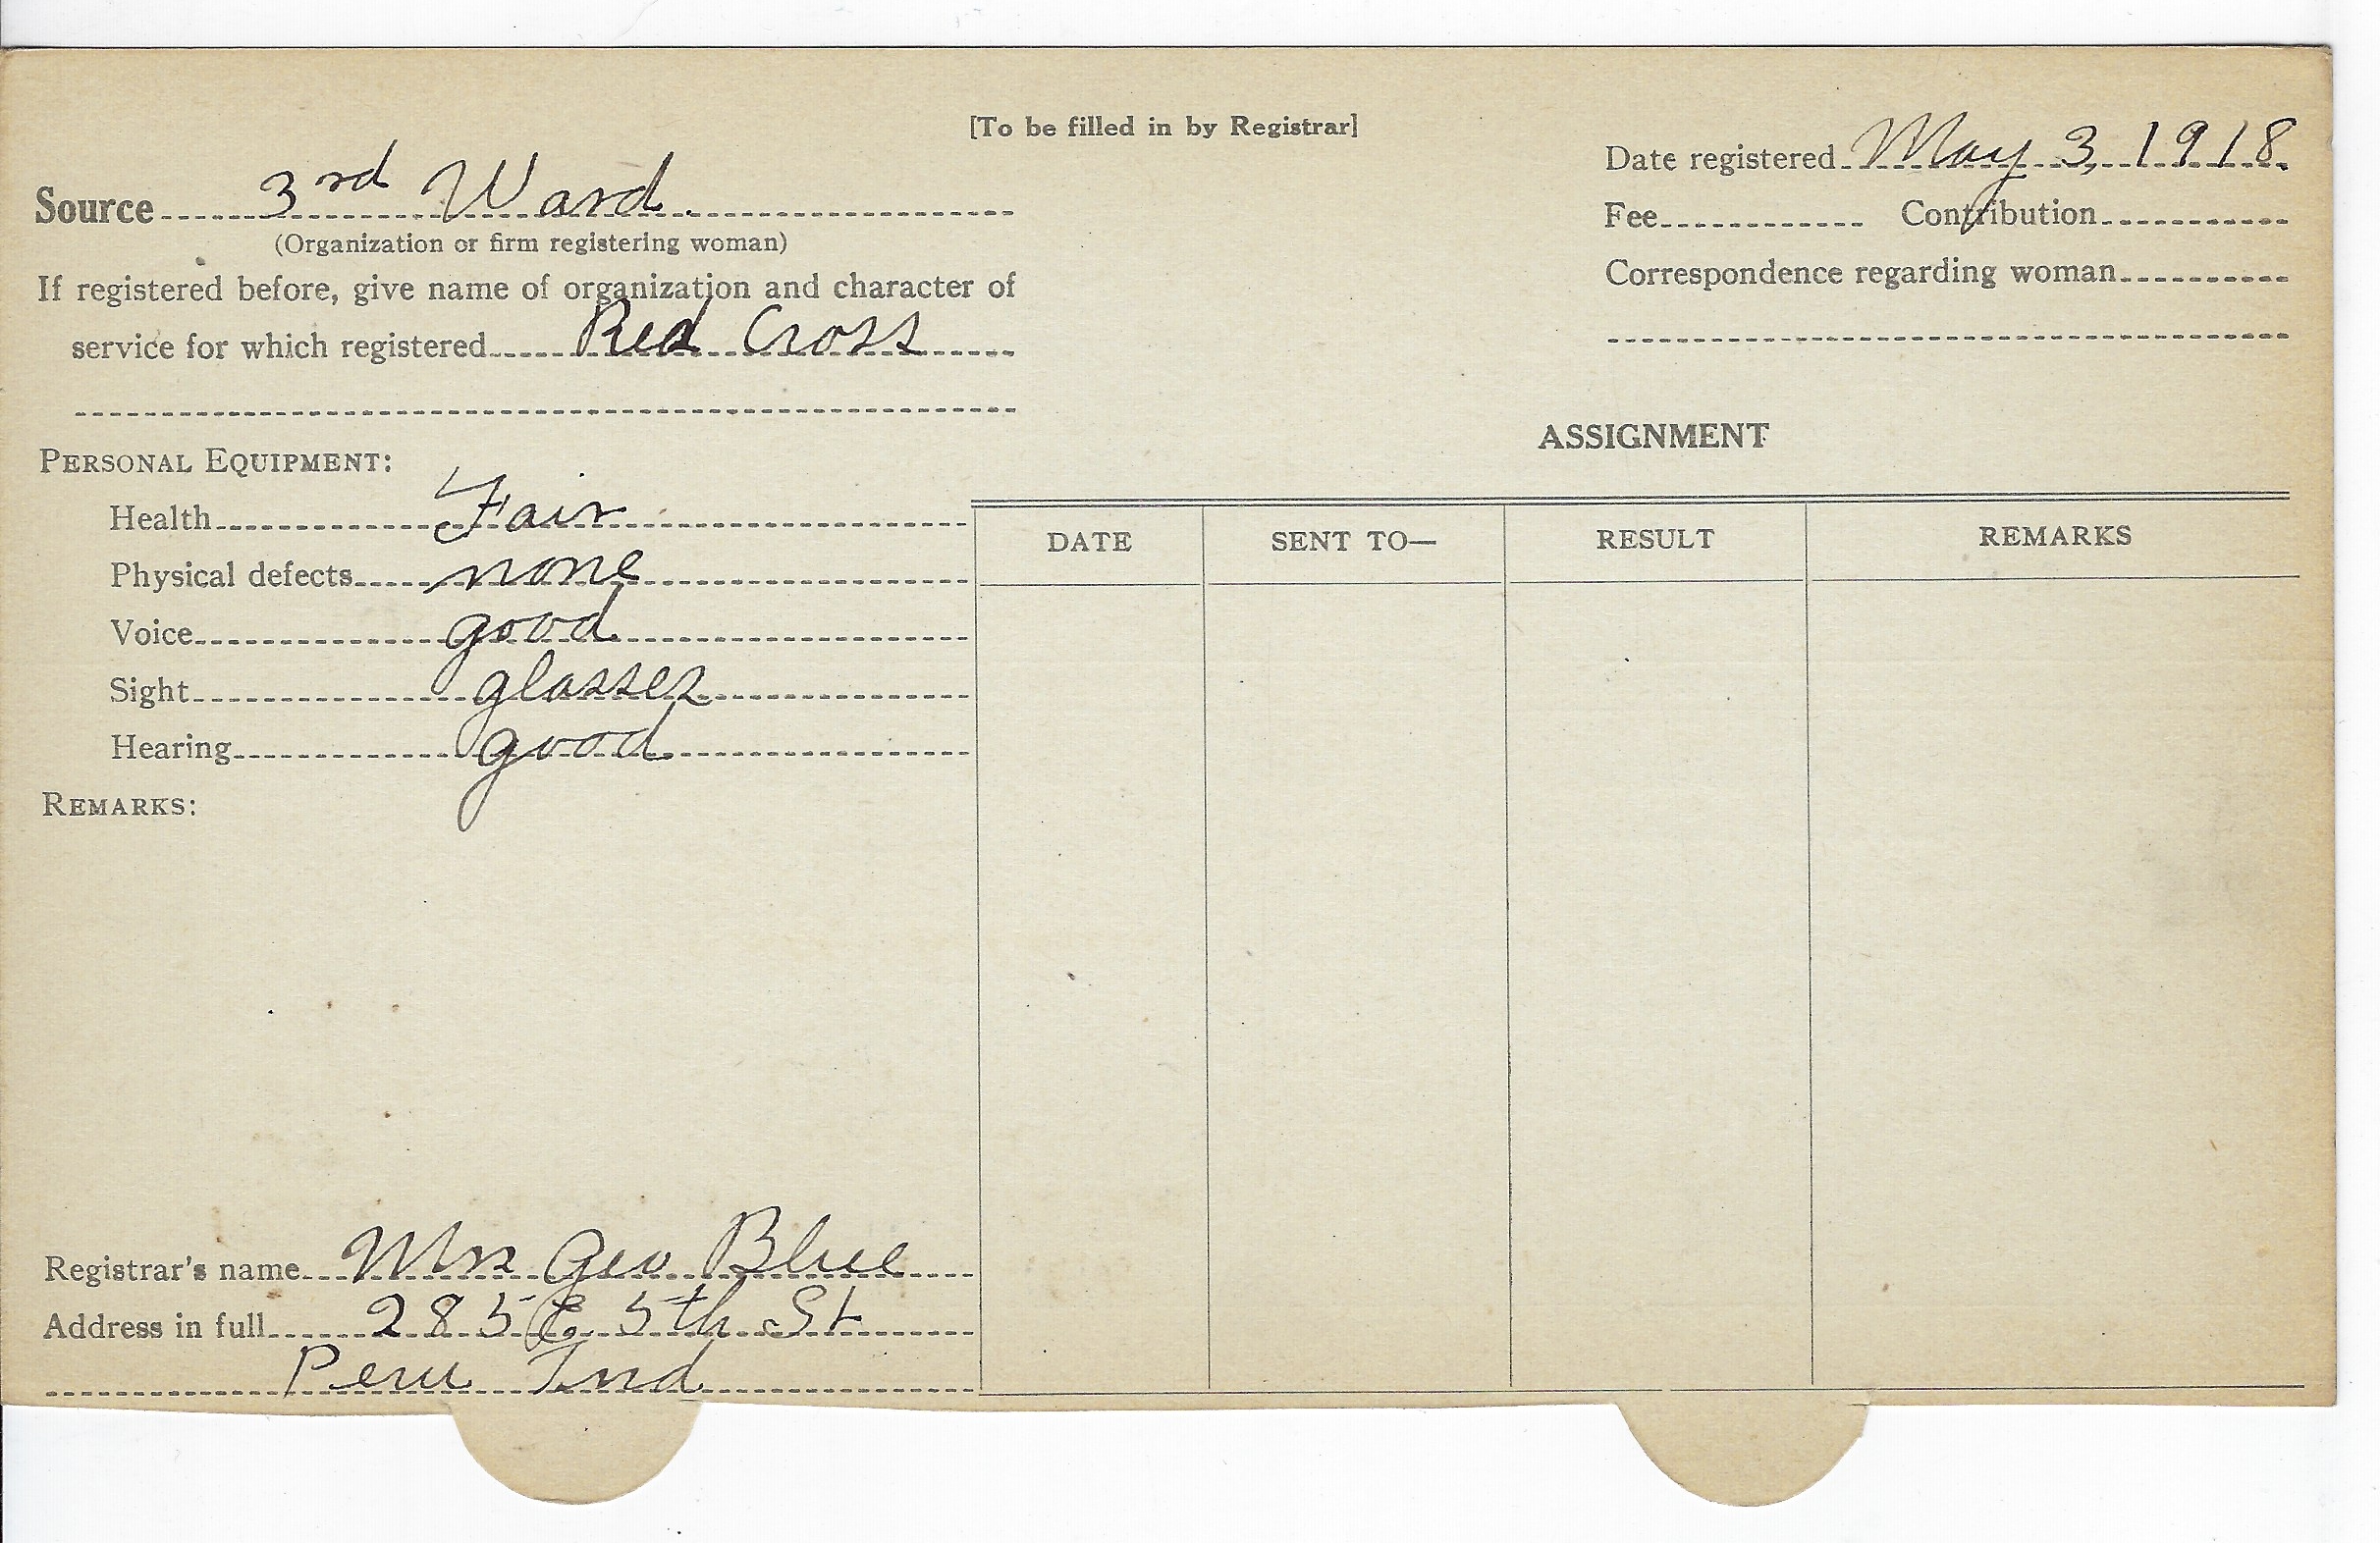 [To be filled in by Registrar]
Date registered May 3, 1918.
Source 3rd Ward.
(Organization or firm registering woman)
Fee Contribution
If registered before, give name of organization and character of
service for which registered Red Cross
Correspondence regarding woman
PERSONAL EQUIPMENT:
Health Fair
Physical defects none
Voice good
Sight glasses
Hearing good
REMARKS:
ASSIGNMENT
DATE SENT TO— RESULT REMARKS
Registrar's name Mrs Geo Blue
Address in full 285 E 5th St
Peru Ind